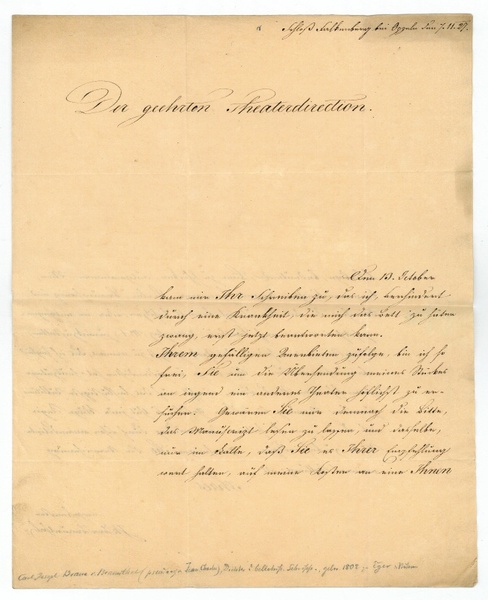 Schloß Falkenberg bei Oppeln den 7.11.27.
Der geehrten Theaterdirection.
Am 13. October
kam mir Ihr Schreiben zu, das ich, verhindert
durch eine Krankheit, die mich das Bett zu hüten
zwang, erst jetzt beantworten kann.
Ihrem gefälligen Anerbieten zufolge, bin ich so
frei, Sie um die Übersendung meines Stückes
an irgend ein anderes Theater höflichst zu er-
suchen. Gewären Sie mir demnach die Bitte,
das Manuscript lesen zu lassen, und dasselbe,
nur im Falle, daß Sie es Ihrer Empfehlung
wert halten, auf meine Kosten an eine Ihnen
Carl Joseph Braun v. Braunthal Dichter geb. 1802 zu Eger